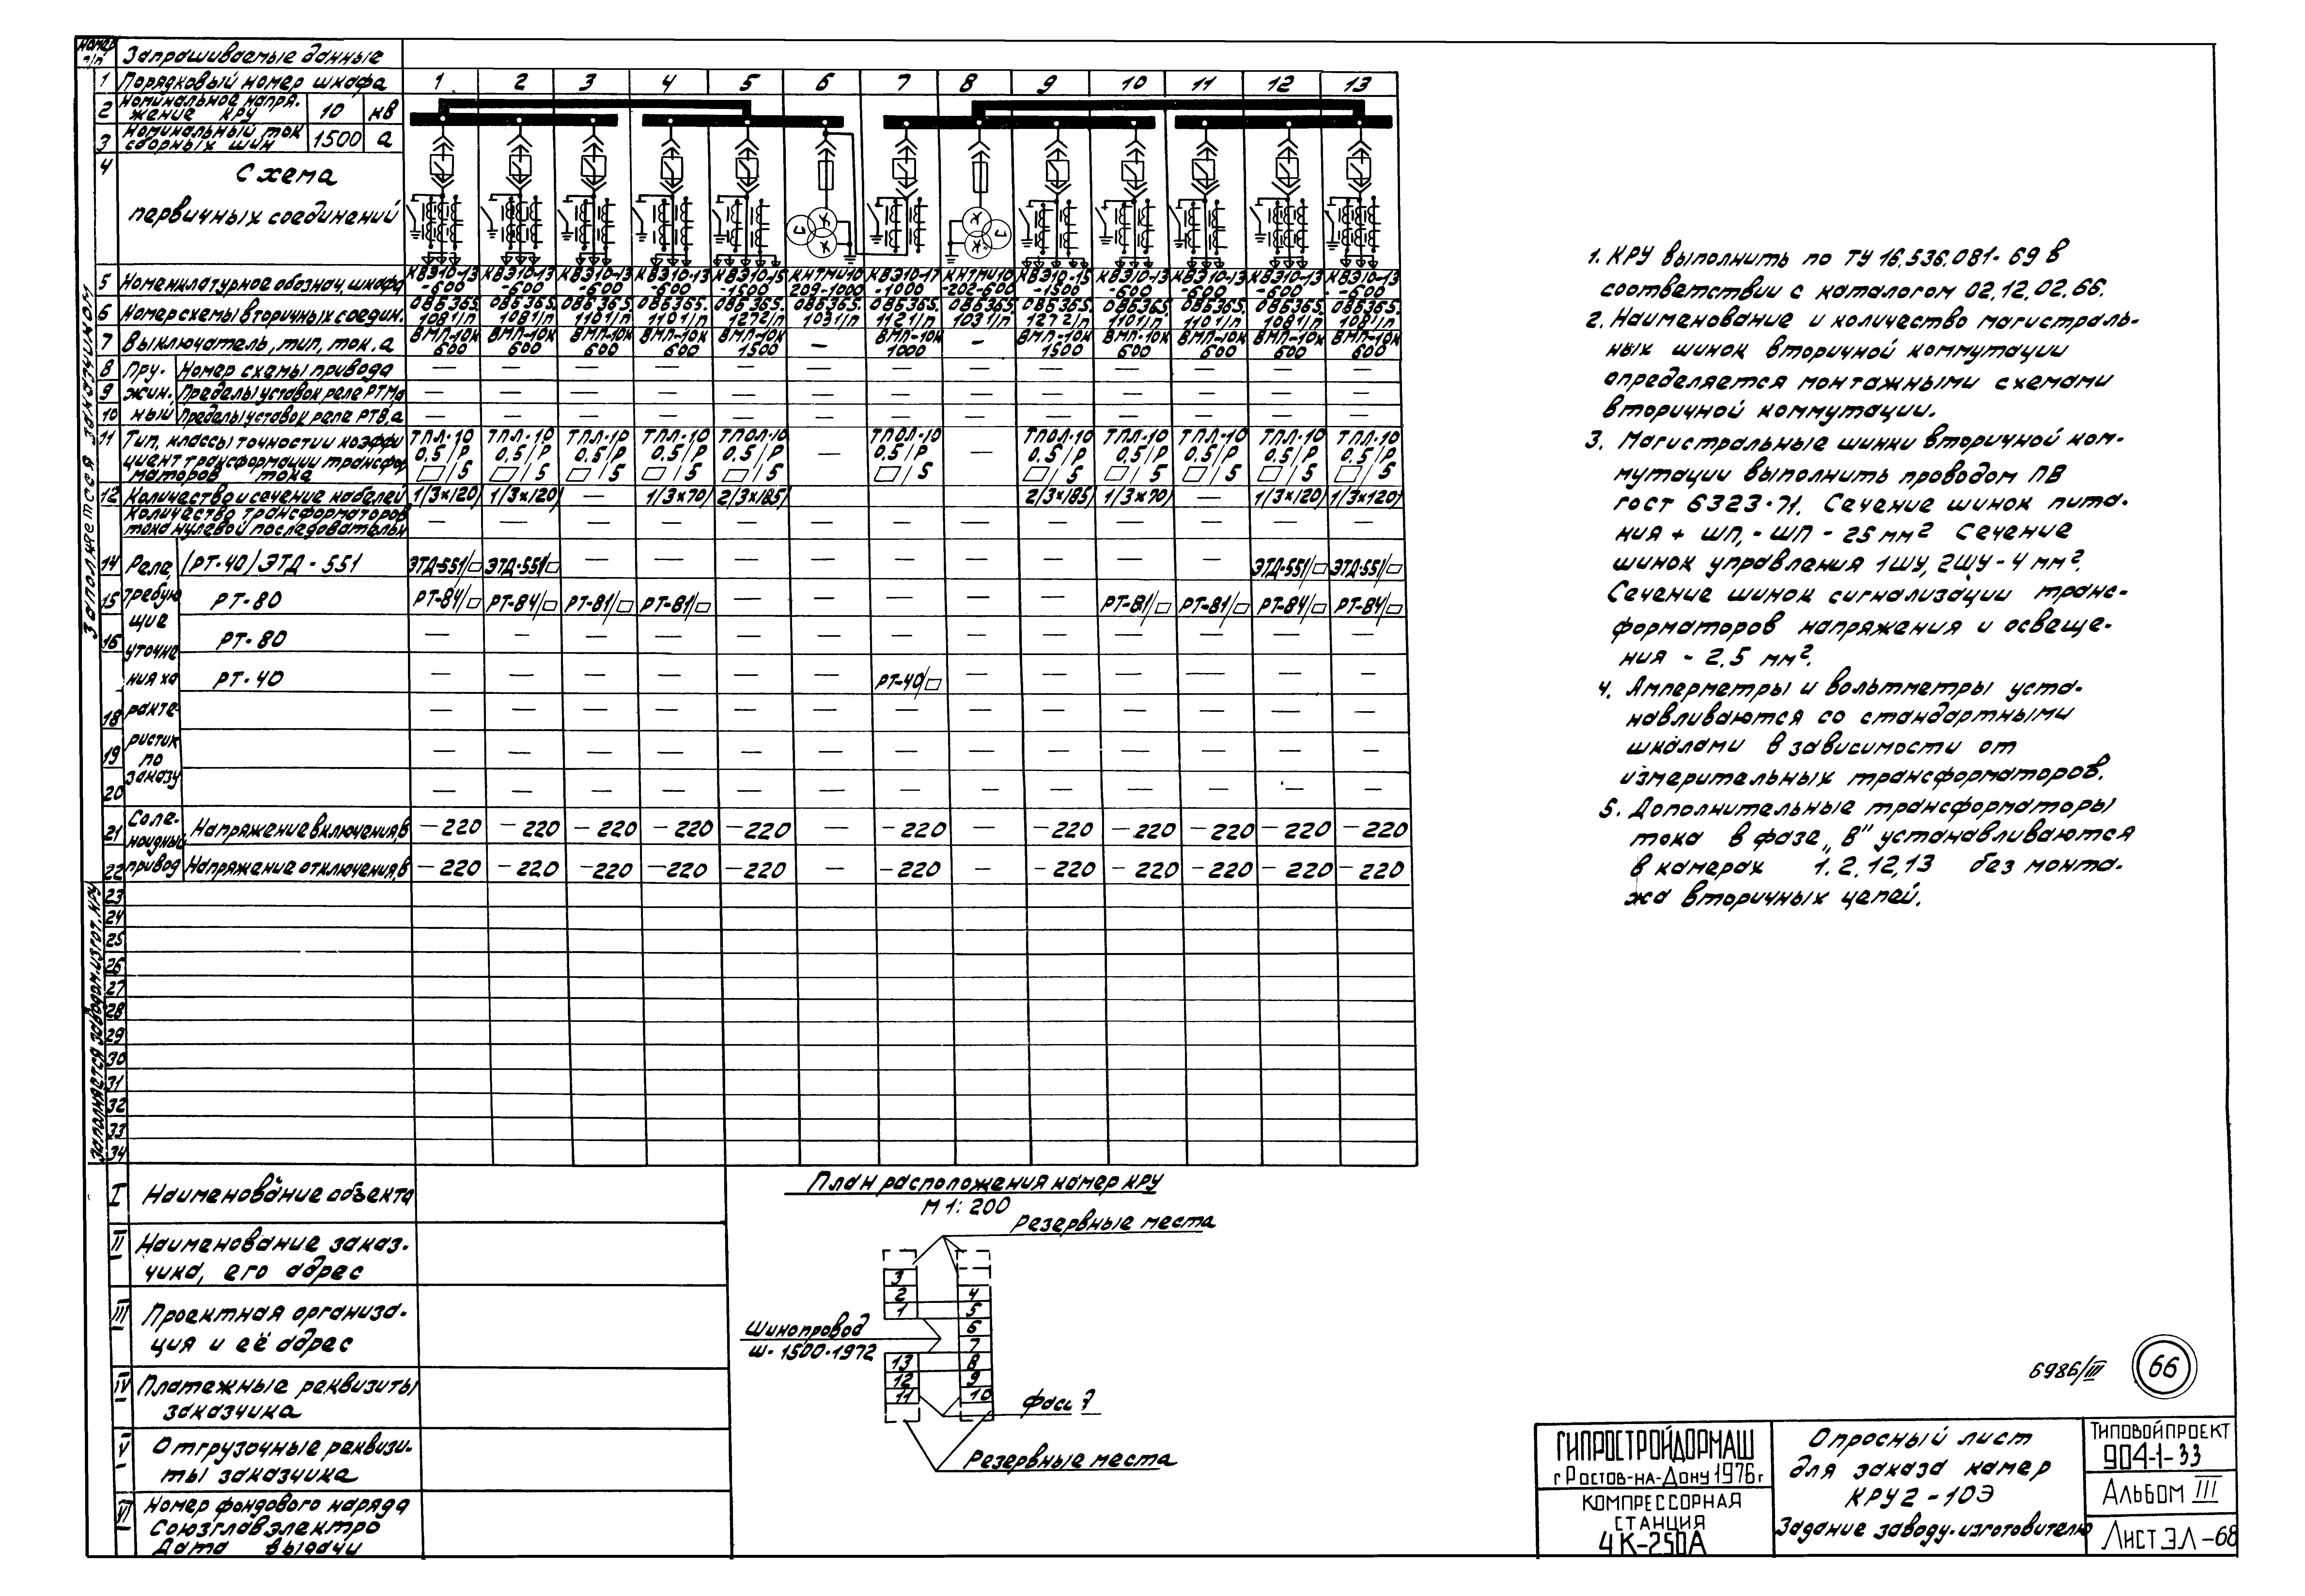 номер п/п Запрашиваемые данные
1 Порядковый номер шкафа 1 2 3 4 5 6 7 8 9 10 11 12 13
2 Номинальное напря-
жение КРУ 10 кВ
3 Номинальный ток
сборных шин 1500 а
4 Схема
первичных соединений
5 Номенклатурное обознач. шкафа КВЭ10-13 КВЭ10-13 КВЭ10-13 КВЭ10-13 КВЭ10-15 КНТМИ10 КВЭ10-17 КНТМИ10 КВЭ10-15 КВЭ10-13 КВЭ10-13 КВЭ10-13 КВЭ10-13
-600 -600 -600 -600 -1500 209-1000 -1000 -202-600 -1500 -600 -600 -600 -600
6 Номер схемы вторичных соедин. ОВБ365. ОВБ365. ОВБ365. ОВБ365. ОВБ365. ОВБ365. ОВБ365. ОВБ365. ОВБ365. ОВБ365. ОВБ365. ОВБ365. ОВБ365.
1081/п 1081/п 1101/п 1101/п 1272/п 1031/п 1121/п 1031/п 1272/п 1101/п 1101/п 1081/п 1081/п
7 Выключатель, тип, ток, а ВМП-10к ВМП-10к ВМП-10к ВМП-10к ВМП-10к — ВМП-10к — ВМП-10к ВМП-10к ВМП-10к ВМП-10к ВМП-10к
600 600 600 600 1500 1000 1500 600 600 600 600
8 Пру- Номер схемы привода — — — — — — — — — — — — —
9 жин. Пределы уставок реле РТМ,а — — — — — — — — — — — — —
10 ный Пределы уставок реле РТВ,а — — — — — — — — — — — — —
11 Тип, классы точности и коэффи ТПЛ-10 ТПЛ-10 ТПЛ-10 ТПЛ-10 ТПОЛ-10 ТПОЛ-10 ТПОЛ-10 ТПЛ-10 ТПЛ-10 ТПЛ-10 ТПЛ-10
циент трансформации трансфор 0.5/Р 0.5/Р 0.5/Р 0.5/Р 0.5/Р — 0.5/Р — 0.5/Р 0.5/Р 0.5/Р 0.5/Р 0.5/Р
маторов тока □/5 □/5 □/5 □/5 □/5 □/5 □/5 □/5 □/5 □/5 □/5
12 Количество и сечение кабелей 1/3х120/ 1/3х120/ — 1/3х70/ 2/3х185/ 2/3х185/ 1/3х70/ — 1/3х120/ 1/3х120/
Количество трансформаторов
тока нулевой последовательн — — — — — — — — — — — — —
14 Реле, (РТ-40) ЭТД-551 ЭТД-551/□ ЭТД-551/□ — — — — — — — — — ЭТД-551/□ ЭТД-551/□
15 требую РТ-80 РТ-84/□ РТ-84/□ РТ-81/□ РТ-81/□ — — — — — РТ-81/□ РТ-81/□ РТ-84/□ РТ-84/□
щие
16 уточне РТ-80 — — — — — — — — — — — — —
ния ха РТ-40 — — — — — — РТ-40/□ — — — — — —
18 ракте- — — — — — — — — — — — — —
ристик
19 по — — — — — — — — — — — — —
заказу
20 — — — — — — — — — — — — —
Соле-
21 ноидный Напряжение включения,в —220 —220 —220 —220 —220 — —220 — —220 —220 —220 —220 —220
22 привод Напряжение отключения,в —220 —220 —220 —220 —220 — —220 — —220 —220 —220 —220 —220
23
24
25
26
27
28
29
30
31
32
33
34
Заполняется заказчиком
Заполняется заводом изгот. КРУ
I Наименование объекта
II Наименование заказ-
чика, его адрес
III Проектная организа-
ция и её адрес
IV Платежные реквизиты
заказчика
V Отгрузочные реквизи-
ты заказчика
VI Номер фондового наряда
Союзглавэлектро
Дата выдачи
План расположения камер КРУ
М 1:200
Резервные места
3
2 4
1 5
6
7
13 8
12 9
11 10
Шинопровод
Ш-1500-1972
Резервные места
1. КРУ выполнить по ТУ 16.536.081-69 в
соответствии с каталогом 02.12.02.66.
2. Наименование и количество магистраль-
ных шинок вторичной коммутации
определяется монтажными схемами
вторичной коммутации.
3. Магистральные шинки вторичной ком-
мутации выполнить проводом ПВ
гост 6323-71. Сечение шинок пита-
ния + шп, - шп - 25 мм² Сечение
шинок управления 1шу, 2шу - 4 мм².
Сечение шинок сигнализации транс-
форматоров напряжения и освеще-
ния - 2.5 мм².
4. Амперметры и вольтметры уста-
навливаются со стандартными
шкалами в зависимости от
измерительных трансформаторов.
5. Дополнительные трансформаторы
тока в фазе „В" устанавливаются
в камерах 1.2.12,13 без монта-
жа вторичных цепей.
6986/III 66
ГИПРОСТРОЙДОРМАШ
г Ростов-на-Дону 1976г
КОМПРЕССОРНАЯ
СТАНЦИЯ
4К-250А
Опросный лист
для заказа камер
КРУ2-10Э
Задание заводу-изготовителю
ТИПОВОЙ ПРОЕКТ
904-1-33
АЛЬБОМ III
ЛИСТ ЭЛ-68